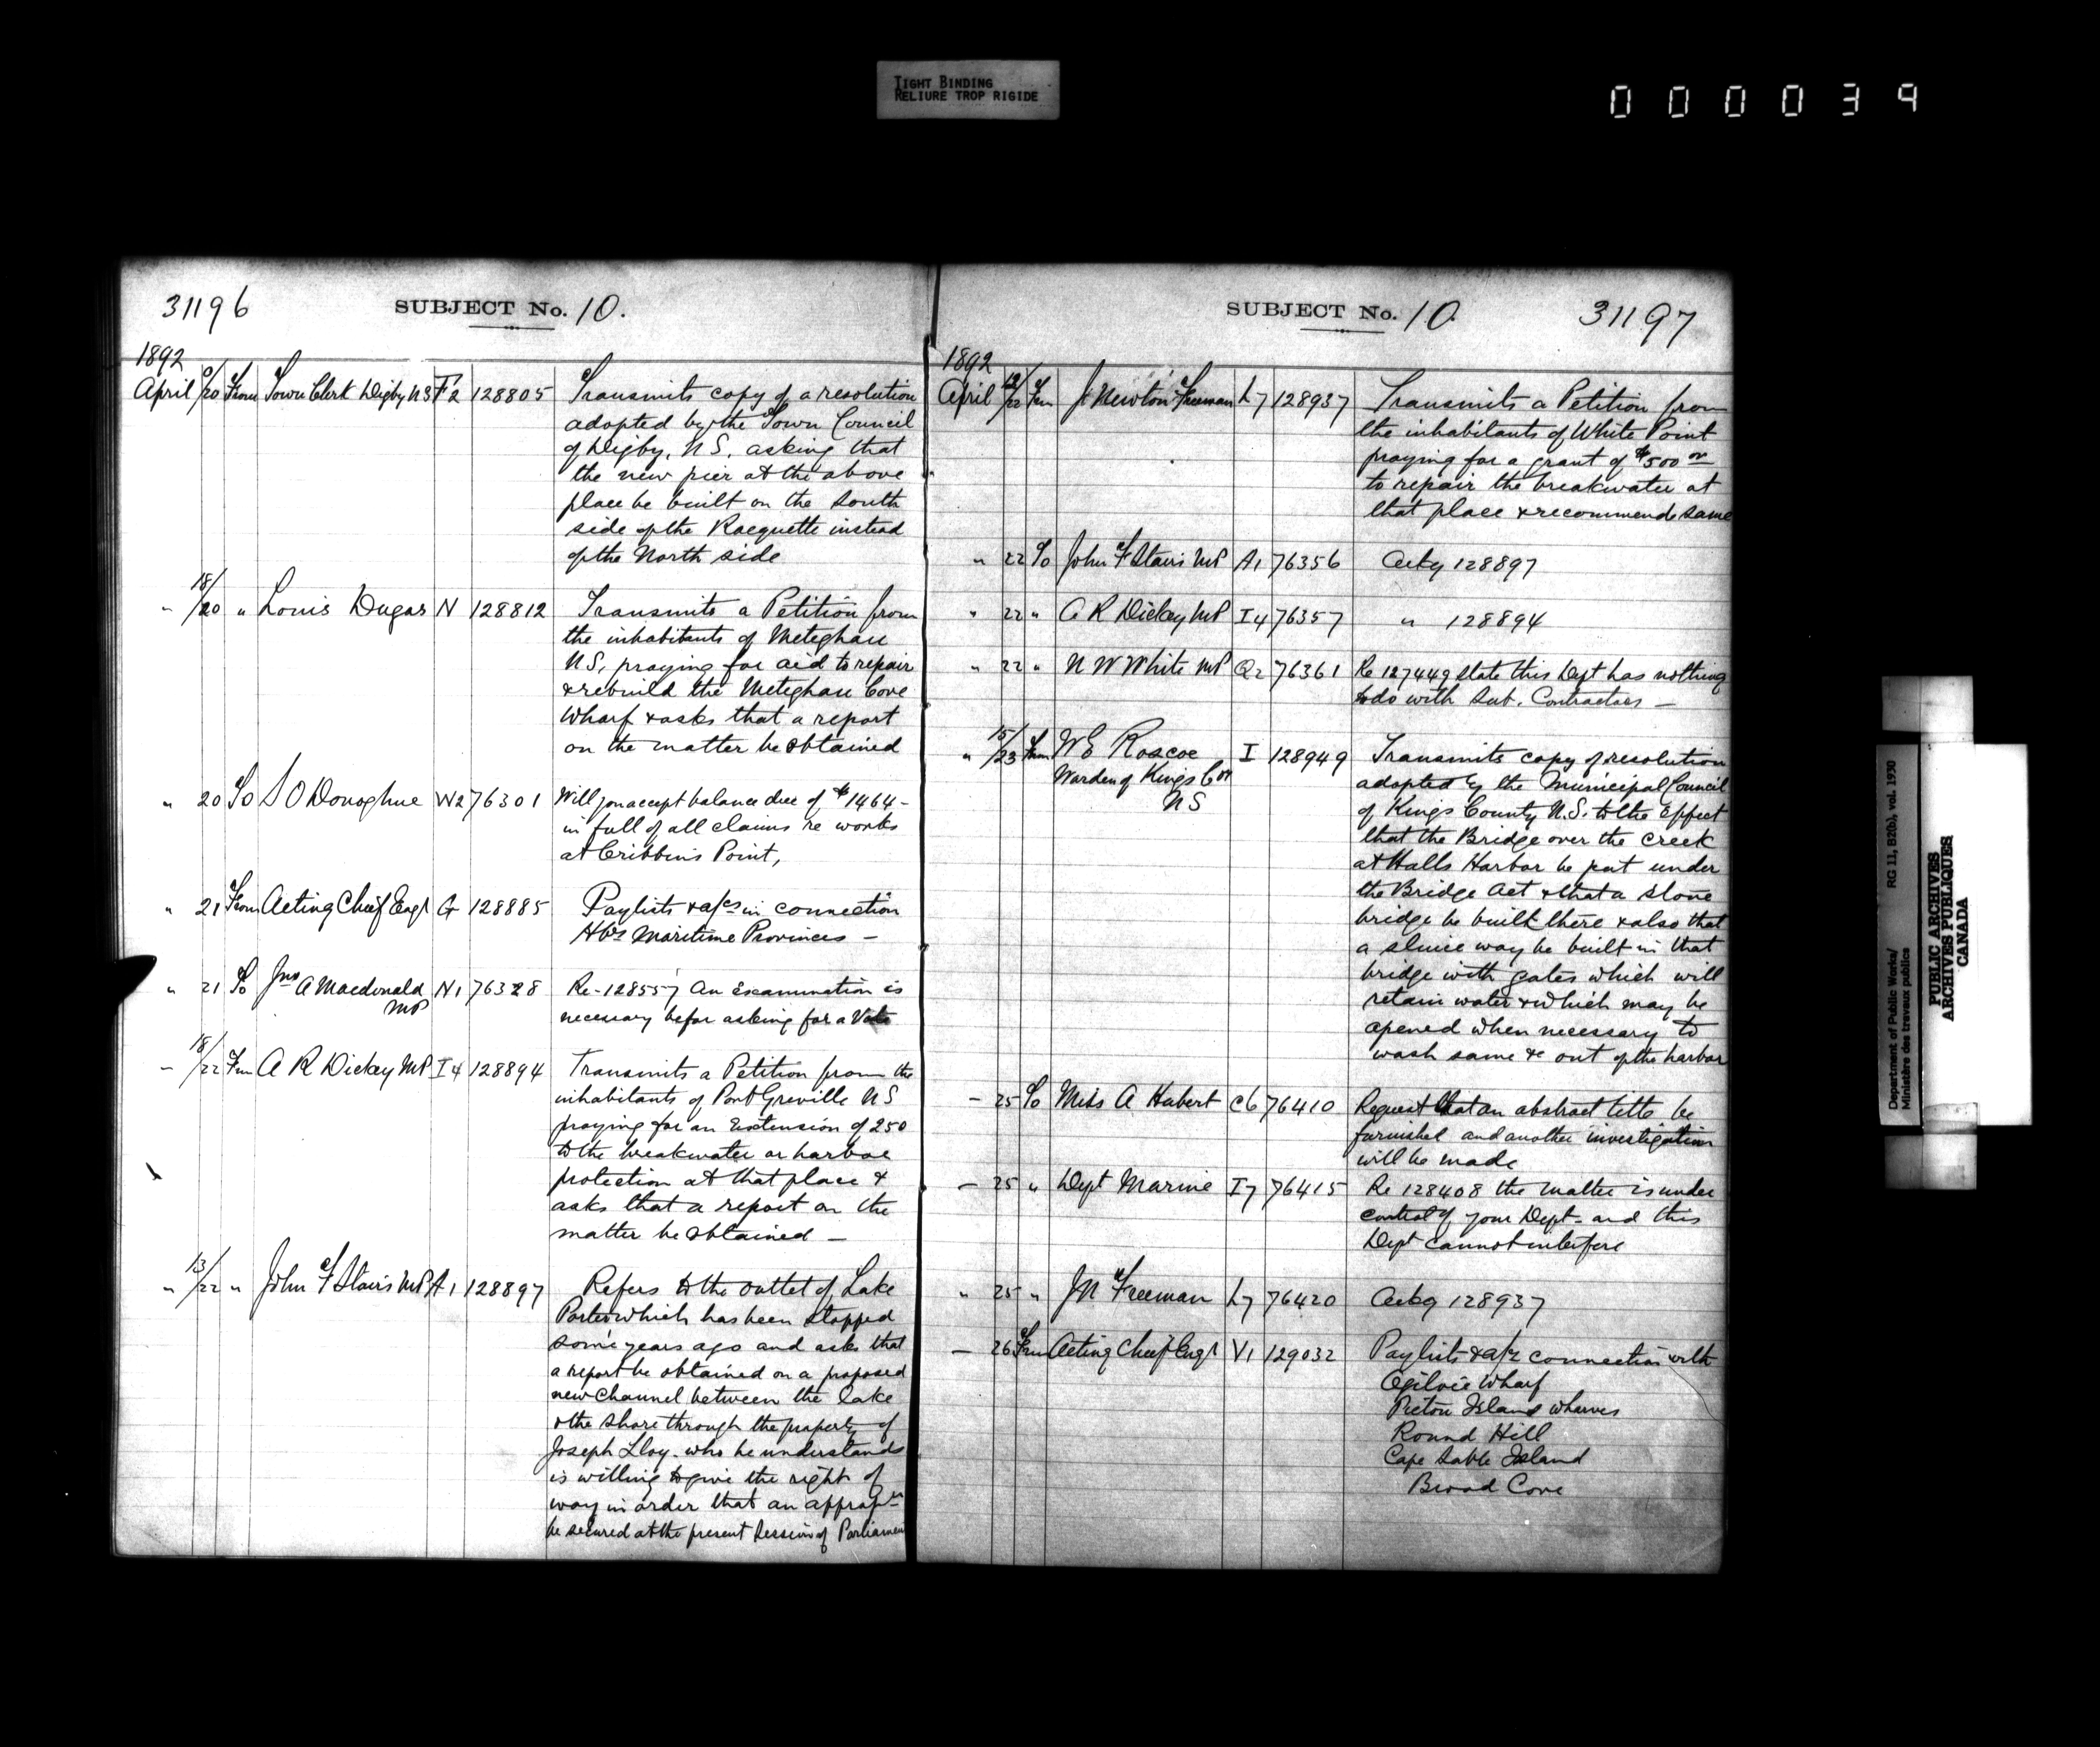 TIGHT BINDING
RELIURE TROP RIGIDE
000039
31196
SUBJECT No. 10.
1892
April /20 From Town Clerk Digby NS F2 128805 Transmits copy of a resolution
adopted by the Town Council
of Digby, N.S. asking that
the new pier at the above
place be built on the South
side of the Racquette instead
of the North side
" 18/20 " Louis Dugas N 128812 Transmits a Petition from
the inhabitants of Meteghan
N.S, praying for aid to repair
& rebuild the Meteghan Cove
Wharf & asks that a report
on the matter be obtained
" 20 To S O'Donoghue W2 76301 Will you accept balance due of $1464-
in full of all claims re works
at Cribbins Point,
" 21 From Acting Chief Engr G 128885 Paylists & a/cs in connection
Hbrs Maritime Provinces -
" 21 To Jno A Macdonald N1 76328 Re-128557 An Examination is
MP necessary befor asking for a Vote
- 18/22 Frm A R Dickey MP I4 128894 Transmits a Petition from the
inhabitants of Port Greville NS
praying for an Extension of 250
to the breakwater or harbor
protection at that place &
asks that a report on the
matter be obtained -
" 13/22 " John F Stairs MP A1 128897 Refers to the outlet of Lake
Porter which has been stopped
some years ago and asks that
a report be obtained on a proposed
new Channel between the lake
& the shore through the property of
Joseph Lloy - who he understands
is willing to give the right of
way in order that an appropn
be secured at the present Session of Parliament
SUBJECT No. 10.
31197
1892
April /22 Frm J Newton Freeman L7 128937 Transmits a Petition from
the inhabitants of White Point
praying for a grant of $500 00
to repair the breakwater at
that place & recommends same
" 22 To John F Stairs MP A1 76356 Ackg 128897
" 22 " A R Dickey MP I4 76357 " 128894
" 22 " N W White MP Q2 76361 Re 127449 state this Dept has nothing
to do with Sub. Contractors -
" 15/23 From W E Roscoe I 128949 Transmits copy of resolution
Warden of Kings Co
NS
adopted by the Municipal Council
of Kings County N.S. to the Effect
that the Bridge over the Creek
at Halls Harbor be put under
the Bridge Act & that a stone
bridge be built there & also that
a sluice way be built in that
bridge with gates which will
retain water & which may be
opened when necessary to
wash same & out of the harbor
- 25 To Miss A Hubert C6 76410 Request that an abstract title be
furnished and another investigation
will be made
- 25 " Dept Marine I7 76415 Re 128408 the matter is under
control of your Dept - and this
Dept cannot interfere
" 25 " J N Freeman L7 76420 Ackg 128937
- 26 Frm Acting Chief Engr V1 129032 Paylists & a/cs connection with
Ogilvie Wharf
Pictou Island wharves
Round Hill
Cape Sable Island
Broad Cove
Department of Public Works/ RG 11, B2(b), vol. 1930
Ministère des travaux publics
PUBLIC ARCHIVES
ARCHIVES PUBLIQUES
CANADA